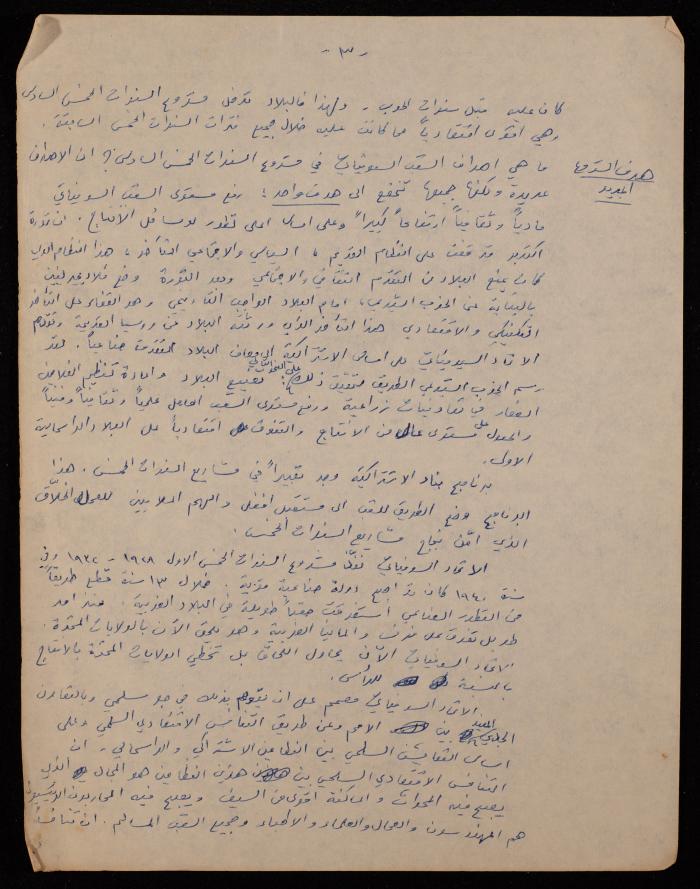 - ٣ -
كان عليه قبل سنوات الحرب ـ ولهذا فالبلاد تدخل مشروع السنوات الخمس السادس
وهي اقوى اقتصادياً مما كانت عليه خلال جميع فترات السنوات الخمس السابقة .
هدف المشروع
الجديد
ما هي اهداف الشعب السوفياتي في مشروع السنوات الخمس السادس ؟ ان الاهداف
عديدة ولكنها جميعها تخضع الى هدف واحد : رفع مستوى الشعب السوفياتي
مادياً وثقافياً ارتفاعاً كبيراً وعلى اساس اعلى تطور لوسائل الانتاج . ان ثورة
اكتوبر قد قضت على النظام القديم ، السياسي والاجتماعي المتأخر ، هذا النظام الذي
كان يمنع البلاد من التقدم الثقافي والاجتماعي وبعد الثورة وضع فلاديمير لينين
بالنيابة عن الحزب الشيوعي ، امام البلاد الواجب التاريخي وهو القضاء على التأخر
التكنيكي والاقتصادي هذا التأخر الذي ورثته البلاد عن روسيا القديمة وتقدم
الاتحاد السوفياتي على اساس الاشتراكية الى مصاف البلاد المتقدمة صناعياً . لقد
رسم الحزب الشيوعي الطريق لتحقيق ذلك على النحو التالي : تصنيع البلاد واعادة تنظيم الفلاحين
الصغار في تعاونيات زراعية ورفع مستوى الشعب العامل علمياً وثقافياً وفنياً
والحصول على مستوى عال من الانتاج والتفوق اقتصادياً على البلاد الرأسمالية
الاولى .
برنامج بناء الاشتراكية وجد تعبيراً في مشاريع السنوات الخمس . هذا
البرنامج وضع الطريق للشعب الى مستقبل افضل والهم الملايين للعمل الخلاق
الذي امّن نجاح مشاريع السنوات الخمس .
الاتحاد السوفياتي نفّذ مشروع السنوات الخمس الاول ١٩٢٨ - ١٩٣٢ وفي
سنة ١٩٤٠ كان قد اصبح دولة صناعية قوية . خلال ١٣ سنة قطع طريقاً
من التطور الصناعي استغرقت حقباً طويلة في البلاد الغربية . منذ امد
طويل تفوق على فرنسا والمانيا الغربية وهو يلحق الآن بالولايات المتحدة .
الاتحاد السوفياتي الآن يحاول اللحاق بل تخطي الولايات المتحدة بالانتاج
بالنسبة للرأس .
الاتحاد السوفياتي مصمم على ان يقوم بذلك في جو سلمي وبالتعاون
الجديد بين الامم وعن طريق التنافس الاقتصادي السلمي وعلى
اساس التعايش السلمي بين النظامين الاشتراكي والرأسمالي ، ان
التنافس الاقتصادي السلمي بين هذين النظامين هو المجال الذي
يصبح فيه المحراث والماكنة اقوى من السيف ويصبح فيه المحاربون
هم المهندسون والعمال والعلماء والاطباء وجميع الشعب المسالم . ان تنافساً